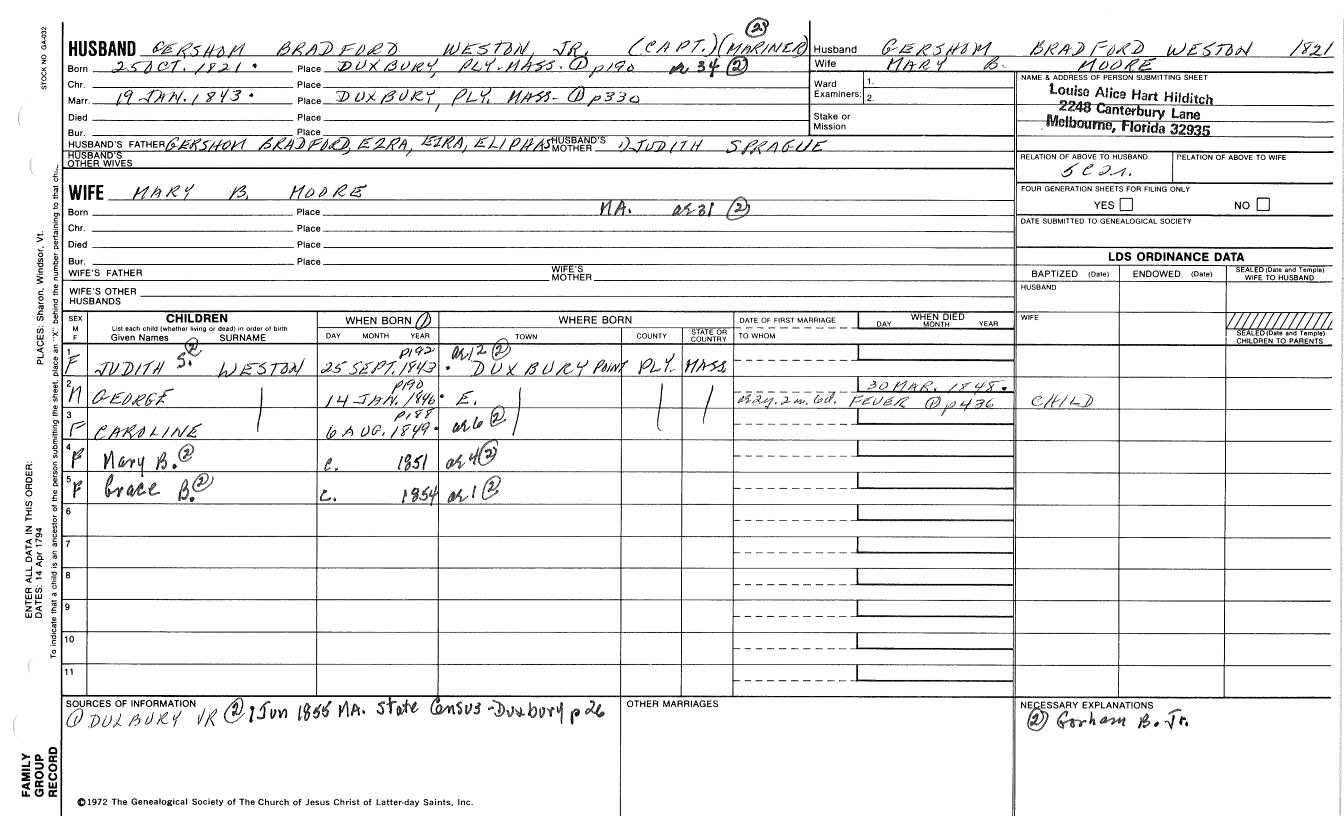 STOCK NO GA-032
②
HUSBAND GERSHOM BRADFORD WESTON, JR. (CAPT.) (MARINER)
Born 25 OCT. 1821 • Place DUXBURY, PLY-MASS-① p190 ae 34 ②
Chr. Place
Marr. 19 JAN. 1843 • Place DUXBURY, PLY. MASS-① p330
Died Place
Bur. Place
HUSBAND'S FATHER GERSHOM BRADFORD, EZRA, EZRA, ELIPHAS HUSBAND'S MOTHER 1) JUDITH SPRAGUE
HUSBAND'S OTHER WIVES
Husband GERSHOM BRADFORD WESTON 1821
Wife MARY B. MOORE
Ward Examiners: 1. 2.
Stake or Mission
NAME & ADDRESS OF PERSON SUBMITTING SHEET
Louise Alice Hart Hilditch
2248 Canterbury Lane
Melbourne, Florida 32935
RELATION OF ABOVE TO HUSBAND RELATION OF ABOVE TO WIFE
5C2r.
FOUR GENERATION SHEETS FOR FILING ONLY
YES NO
DATE SUBMITTED TO GENEALOGICAL SOCIETY
WIFE MARY B. MOORE
Born Place MA. ae 31 ②
Chr. Place
Died Place
Bur. Place
WIFE'S FATHER WIFE'S MOTHER
WIFE'S OTHER HUSBANDS
LDS ORDINANCE DATA
BAPTIZED (Date) ENDOWED (Date) SEALED (Date and Temple) WIFE TO HUSBAND
HUSBAND
WIFE
SEALED (Date and Temple) CHILDREN TO PARENTS
SEX M F CHILDREN WHEN BORN ① WHERE BORN DATE OF FIRST MARRIAGE WHEN DIED
List each child (whether living or dead) in order of birth
Given Names SURNAME DAY MONTH YEAR TOWN COUNTY STATE OR COUNTRY TO WHOM DAY MONTH YEAR
1 F JUDITH S. ② WESTON p192 25 SEPT. 1843 • ae 12 ② DUXBURY POINT PLY. MASS
2 M GEORGE p190 14 JAN. 1846 • E. 30 MAR. 1848 •
ae 2y. 2m. 6d. FEVER ① p436 CHILD
3 F CAROLINE p188 6 AUG. 1849 • ae 6 ②
4 F Mary B. ② c. 1851 ae 4 ②
5 F Grace B. ② c. 1854 ae 1 ②
6
7
8
9
10
11
SOURCES OF INFORMATION
① DUXBURY VR ② 1 Jun 1855 MA. State Census-Duxbury p 26
OTHER MARRIAGES
NECESSARY EXPLANATIONS
② Gorham B. Jr.
©1972 The Genealogical Society of The Church of Jesus Christ of Latter-day Saints, Inc.
FAMILY GROUP RECORD
ENTER ALL DATA IN THIS ORDER:
DATES: 14 Apr 1794
PLACES: Sharon, Windsor, Vt.
To indicate that a child is an ancestor of the person submitting the sheet, place an "X" behind the number pertaining to that